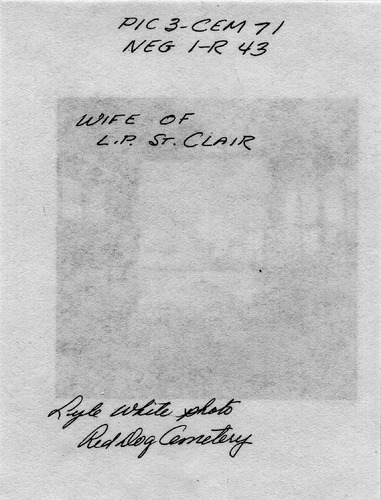 PIC 3-CEM 71
NEG 1-R 43
WIFE OF
L.P. ST. CLAIR
Lyle White photo
Red Dog Cemetery